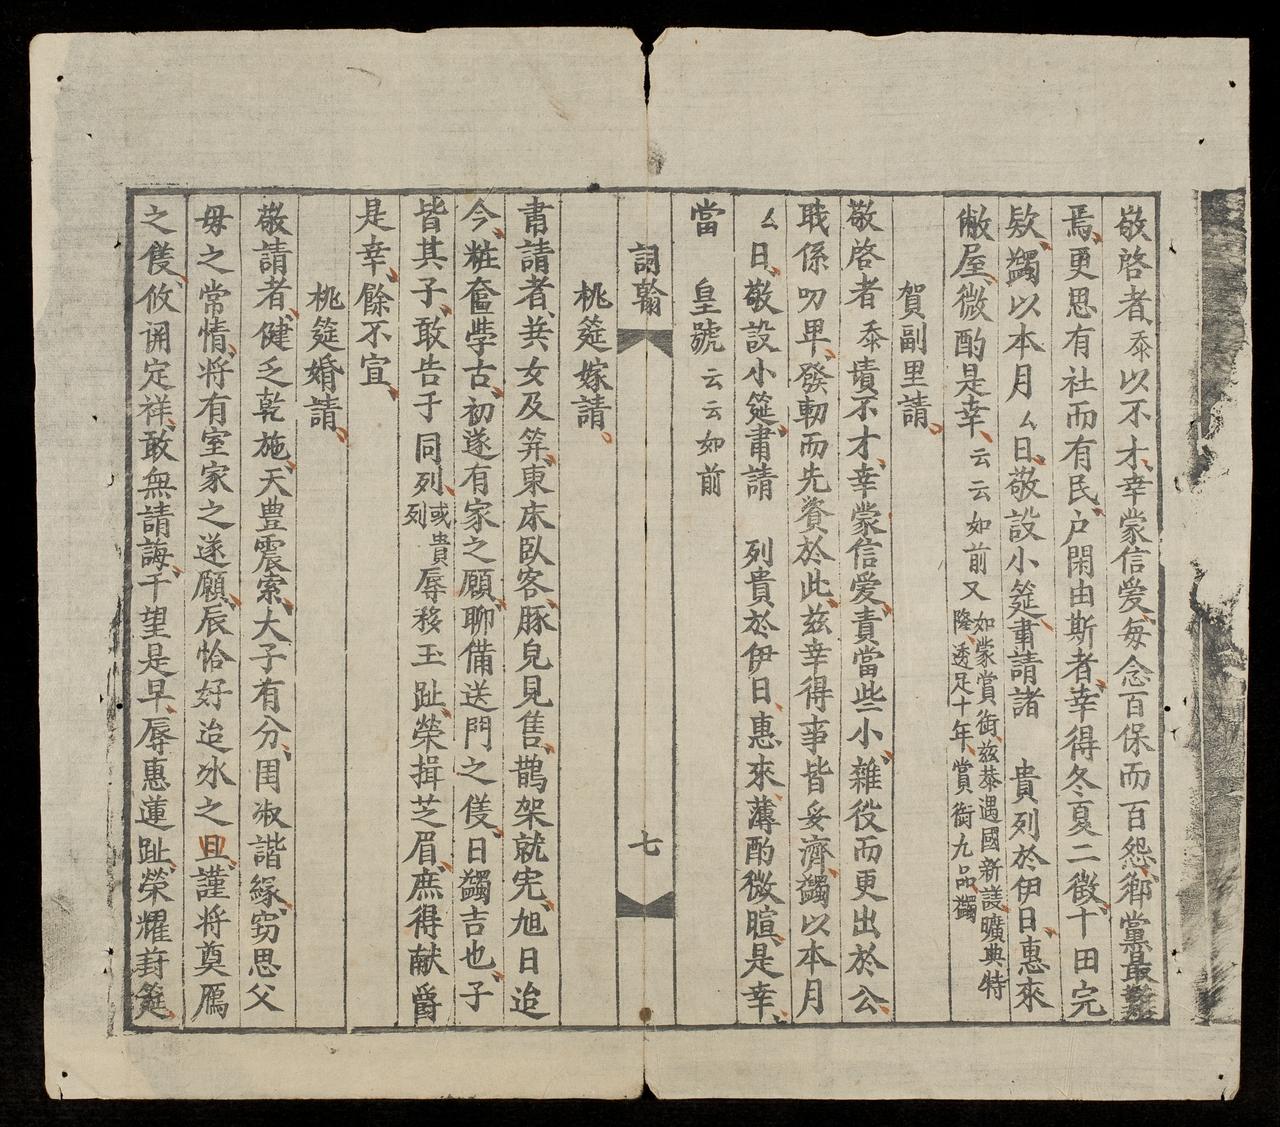 敬啓者忝以不才幸蒙信爱每念百保而百怨鄉黨最
焉更思有社而有民户閑由斯者幸得冬夏二徵十田完
欵蠲以本月厶日敬設小筵肅請諸 貴列於伊日惠來
敝屋微酌是幸云云如前又如蒙賞銜兹恭遇國新謨曠典特
隆透足十年賞銜九品蠲
賀副里請
敬啓者忝責不才幸蒙信爱責當些小雜役而更出於公
職係叨卑發軔而先資於此兹幸得事皆妥濟蠲以本月
厶日敬設小筵肅請 列貴於伊日惠來薄酌微暄是幸
當 皇號云云如前
詞翰 七
桃筵嫁請
肅請者共女及笄東床臥客豚兒見售鵲架就完旭日迨
今粧奩学古初遂有家之願聊備送門之隻日蠲吉也子
皆其子敢告于同列或貴列辱移玉趾榮揖芝眉庶得献爵
是幸餘不宣
桃筵婚請
敬請者健乏乾施天豊震索大子有分周淑諧緣窃思父
毋之常情将有室家之遂願辰恰好迨冰之且謹将奠鴈
之隻攸閗定祥敢無請誨干望是早辱惠蓮趾榮耀葑筵